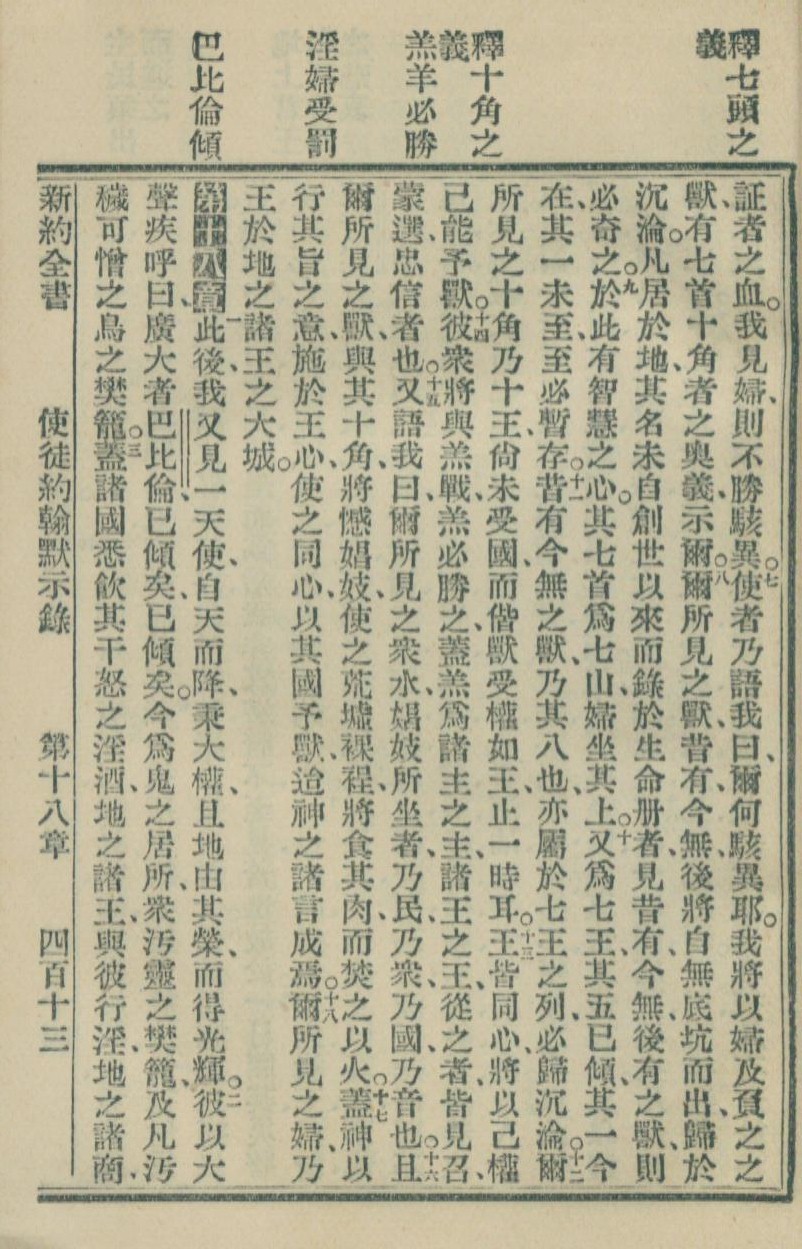 釋七頭之
義
釋十角之
義
羔羊必勝
淫婦受罰
巴比倫傾
証者之血。我見婦、則不勝駭異。七使者乃語我曰、爾何駭異耶。我將以婦及負之之
獸、有七首十角者之奧義、示爾。八爾所見之獸、昔有、今無、後將自無底坑而出、歸於
沉淪。凡居於地、其名未自創世以來而錄於生命册者、見昔有、今無、後有之獸、則
必奇之。九於此有智慧之心。其七首爲七山、婦坐其上。十又爲七王、其五已傾、其一今
在、其一未至、至必暫存。十一昔有今無之獸、乃其八也、亦屬於七王之列、必歸沉淪。十二爾
所見之十角乃十王、尙未受國、而偕獸受權如王、止一時耳。十三王皆同心、將以己權
己能予獸。十四彼衆將與羔戰、羔必勝之、蓋羔爲諸主之主、諸王之王、從之者、皆見召、
蒙選、忠信者也。十五又語我曰、爾所見之衆水、娼妓所坐者、乃民、乃衆、乃國、乃音也。十六且
爾所見之獸、與其十角、將憾娼妓、使之荒墟裸裎、將食其肉、而焚之以火。十七蓋神以
行其旨之意、施於王心、使之同心、以其國予獸、迨神之諸言成焉。十八爾所見之婦、乃
王於地之諸王之大城。
第十八章一此後、我又見一天使、自天而降、秉大權、且地由其榮、而得光輝。二彼以大
聲疾呼曰、廣大者巴比倫、已傾矣、已傾矣。今爲鬼之居所、衆汚靈之樊籠、及凡汚
穢可憎之鳥之樊籠。三蓋諸國悉飮其干怒之淫酒、地之諸王、與彼行淫、地之諸商、
新約全書　使徒約翰默示錄　第十八章　四百十三